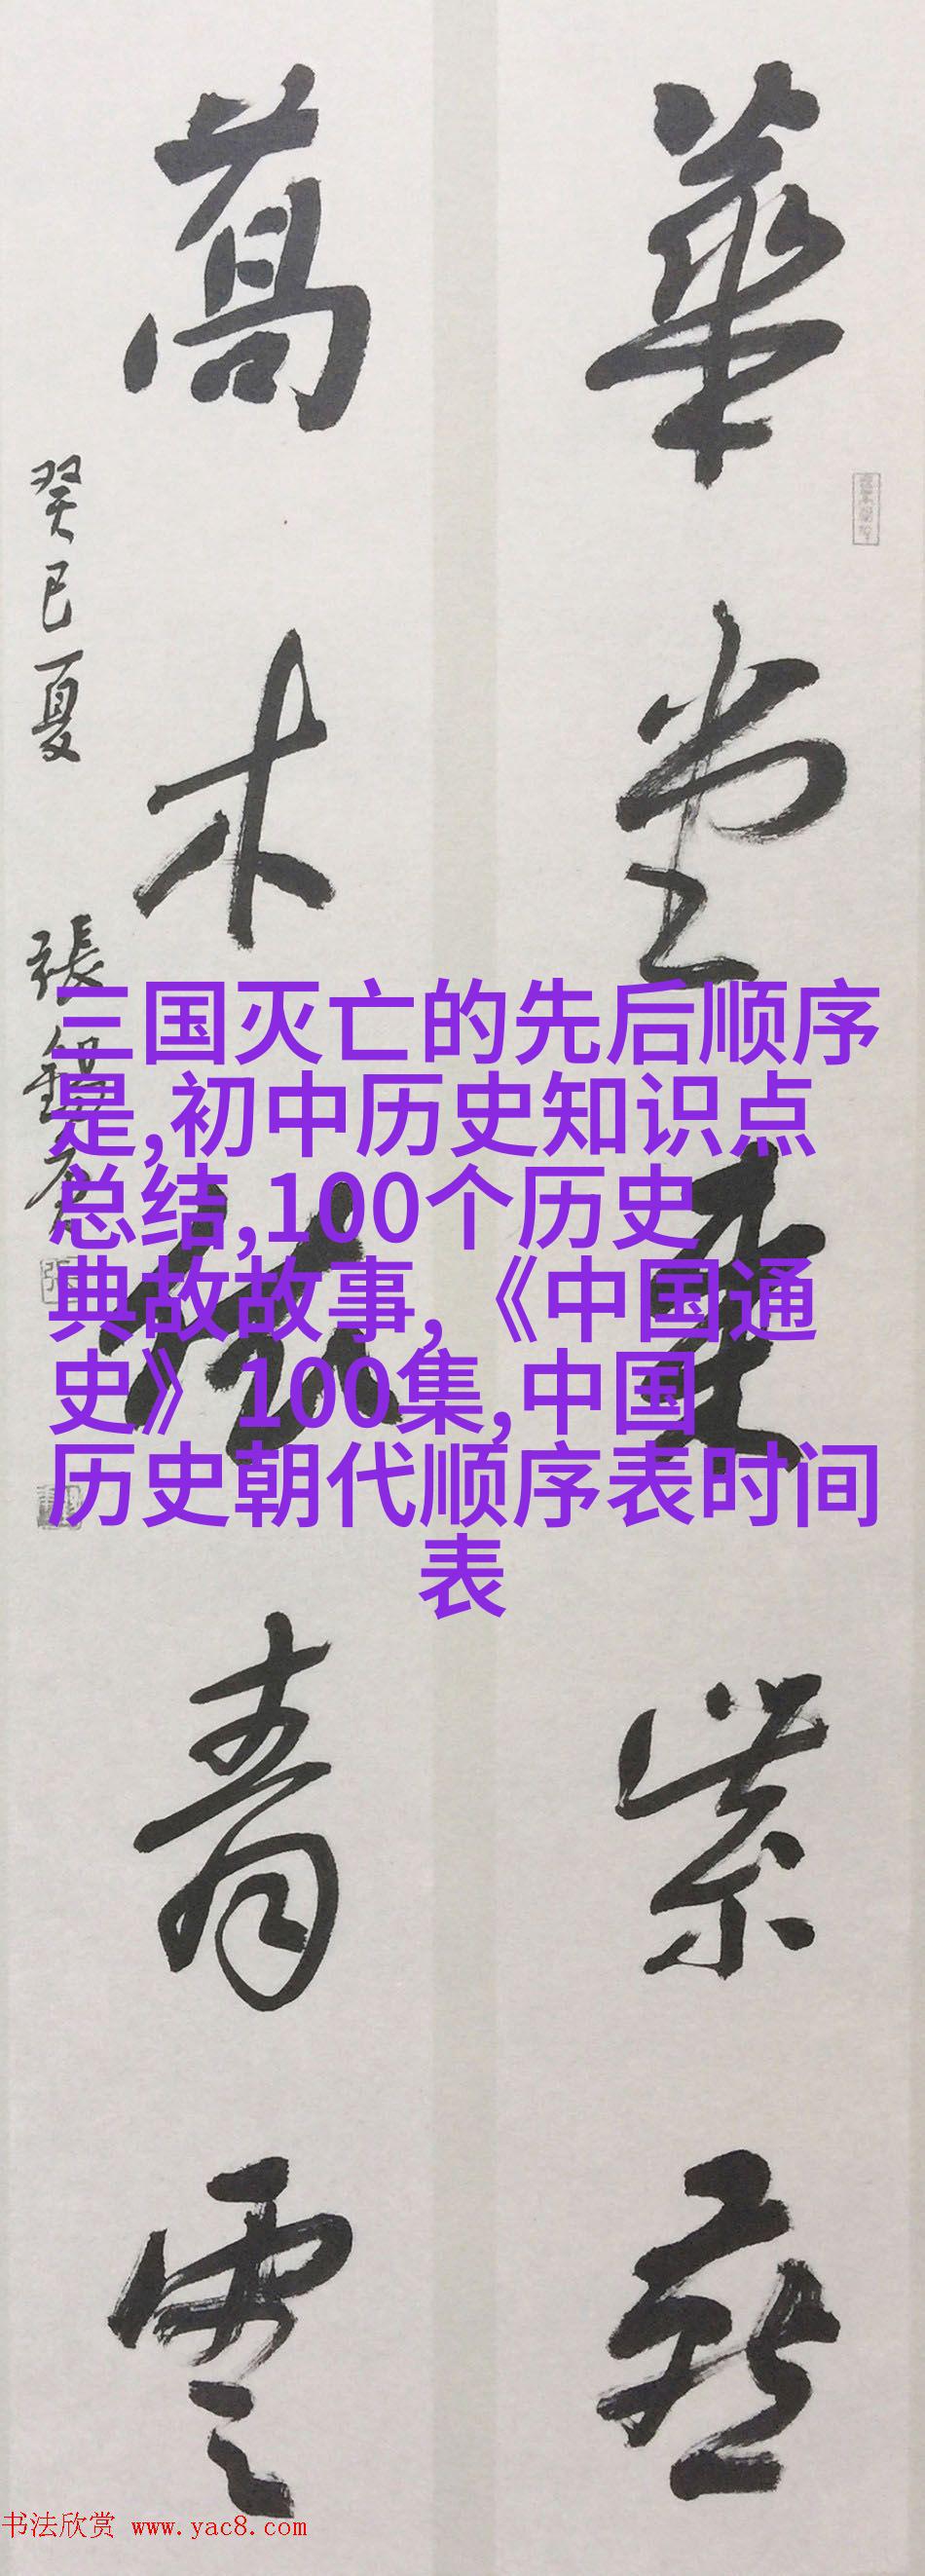 華堂紫燕
萬木青雲
癸巳夏 張錫
三国灭亡的先后顺序
是,初中历史知识点
总结,100个历史
典故故事,《中国通
史》100集,中国
历史朝代顺序表时间
表
书法欣赏 www.yac8.com